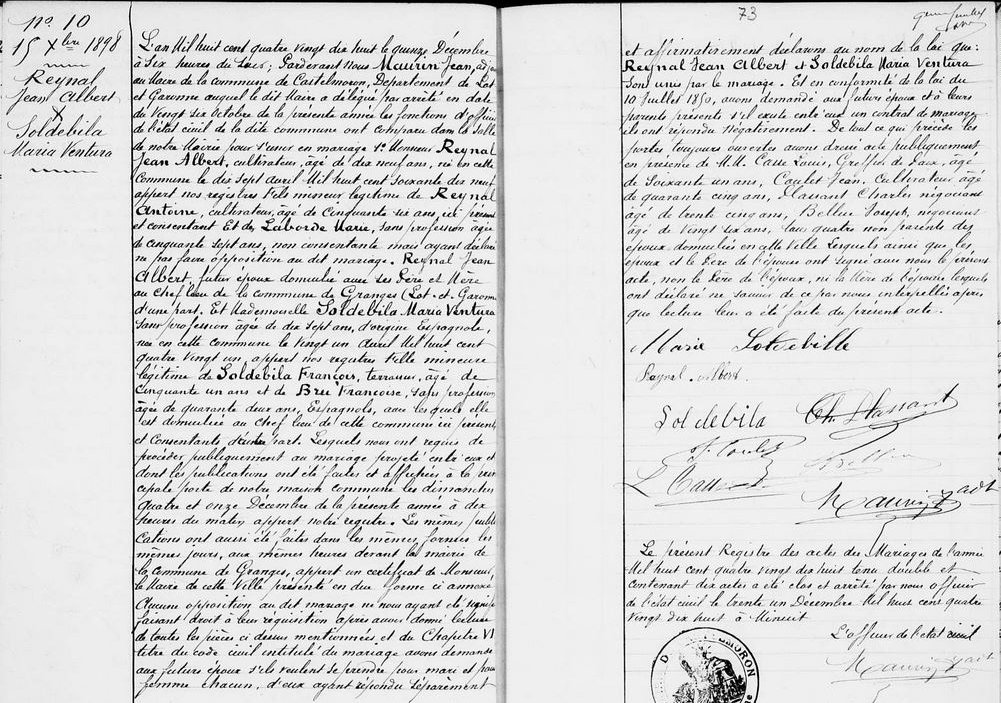 No. 10
15 Xbre 1898
Reynal
Jean Albert
X
Soldebila
Maria Ventura
L'an Mil huit cent quatre vingt dix huit le quinze Décembre
à Six heures du Soir; Pardevant Nous Maurin Jean, adjoint
au Maire de la commune de Castelmoron, Département de Lot
et Garonne auquel le dit Maire a délégué par arrêté en date
du Vingt Six Octobre de la présente année les fonctions d'officier
de l'état civil de la dite commune ont comparu dans la Salle
de notre Mairie pour s'unir en mariage 1° Monsieur Reynal
Jean Albert, cultivateur, âgé de dix neuf ans, né en cette
Commune le dix Sept avril Mil huit cent Soixante dix neuf
appert nos registres Fils mineur légitime de Reynal
Antoine, cultivateur, âgé de Cinquante six ans, ici présent
et consentant Et de Laborde Marie, sans profession âgée
de cinquante Sept ans, non consentante mais ayant déclaré
ne pas faire opposition au dit mariage. Reynal Jean
Albert, futur époux domicilié avec ses Père et Mère
au Chef lieu de la commune de Granges (Lot-et-Garonne
d'une part. Et Mademoiselle Soldebila Maria Ventura
Sans profession âgée de dix Sept ans, d'origine Espagnole,
née en cette commune le Vingt un avril Mil huit cent
quatre vingt un, appert nos registres Fille mineure
légitime de Soldebila François, terrassier, âgé de
Cinquante un ans et de Breu Françoise, Sans profession
âgée de quarante deux ans, Espagnols, avec lesquels elle
est domiciliée au Chef lieu de cette commune ici présents
et Consentants d'autre part. Lesquels nous ont requis de
procéder publiquement au mariage projeté entr'eux et
dont les publications ont été faites et affichées à la prin
cipale porte de notre maison commune les dimanches
quatre et onze Décembre de la présente année à dix
heures du matin appert notre registre. Les mêmes publi
cations ont aussi été faites dans les mêmes formes les
mêmes jours, aux mêmes heures devant la mairie de
la commune de Granges, appert un certificat de Monsieur
le Maire de cette Ville présenté en due forme ci annexé.
Aucune opposition au dit mariage ne nous ayant été signifiée
faisant droit à leur réquisition après avoir donné lecture
de toutes les pièces ci dessus mentionnées et du Chapitre VI
titre du code civil intitulé du mariage avons demandé
aux futurs époux s'ils veulent se prendre pour mari et pour
femme chacun d'eux ayant répondu Séparément
73
et affirmativement déclarons au nom de la loi que:
Reynal Jean Albert et Soldebila Maria Ventura
Sont unis par le mariage. Et en conformité de la loi du
10 Juillet 1850, avons demandé aux futurs époux et à leurs
parents présents s'il existe entr'eux un contrat de mariage
ils ont répondu Négativement. De tout ce qui précède les
portes toujours ouvertes avons dressé acte publiquement
en présence de M.M. Casse Louis, Greffier de Paix, âgé
de Soixante un ans, Coulet Jean, Cultivateur âgé
de quarante cinq ans, Flassant Charles négociant
âgé de trente cinq ans, Joseph, négociant
âgé de Vingt Six ans, tous quatre non parents des
époux domiciliés en cette Ville Lesquels ainsi que les
époux et le Père de l'épouse ont signé avec nous le présent
acte, non le Père de l'époux, ni la Mère de l'épouse lesquels
ont déclaré ne savoir de ce par nous interpellés après
que lecture leur a été faite du présent acte.
Marie Soldebille
Reynal Albert
Soldebila Ch. Flassant
J. Coulet
L. Casse
Maurin J adt
Le présent Registre des actes des Mariages de l'année
Mil huit cent quatre vingt dix huit tenu double et
contenant dix actes a été clos et arrêté par nous officier
de l'état civil le trente un Décembre Mil huit cent quatre
vingt dix huit à Minuit
L'officier de l'état civil
Maurin J adt